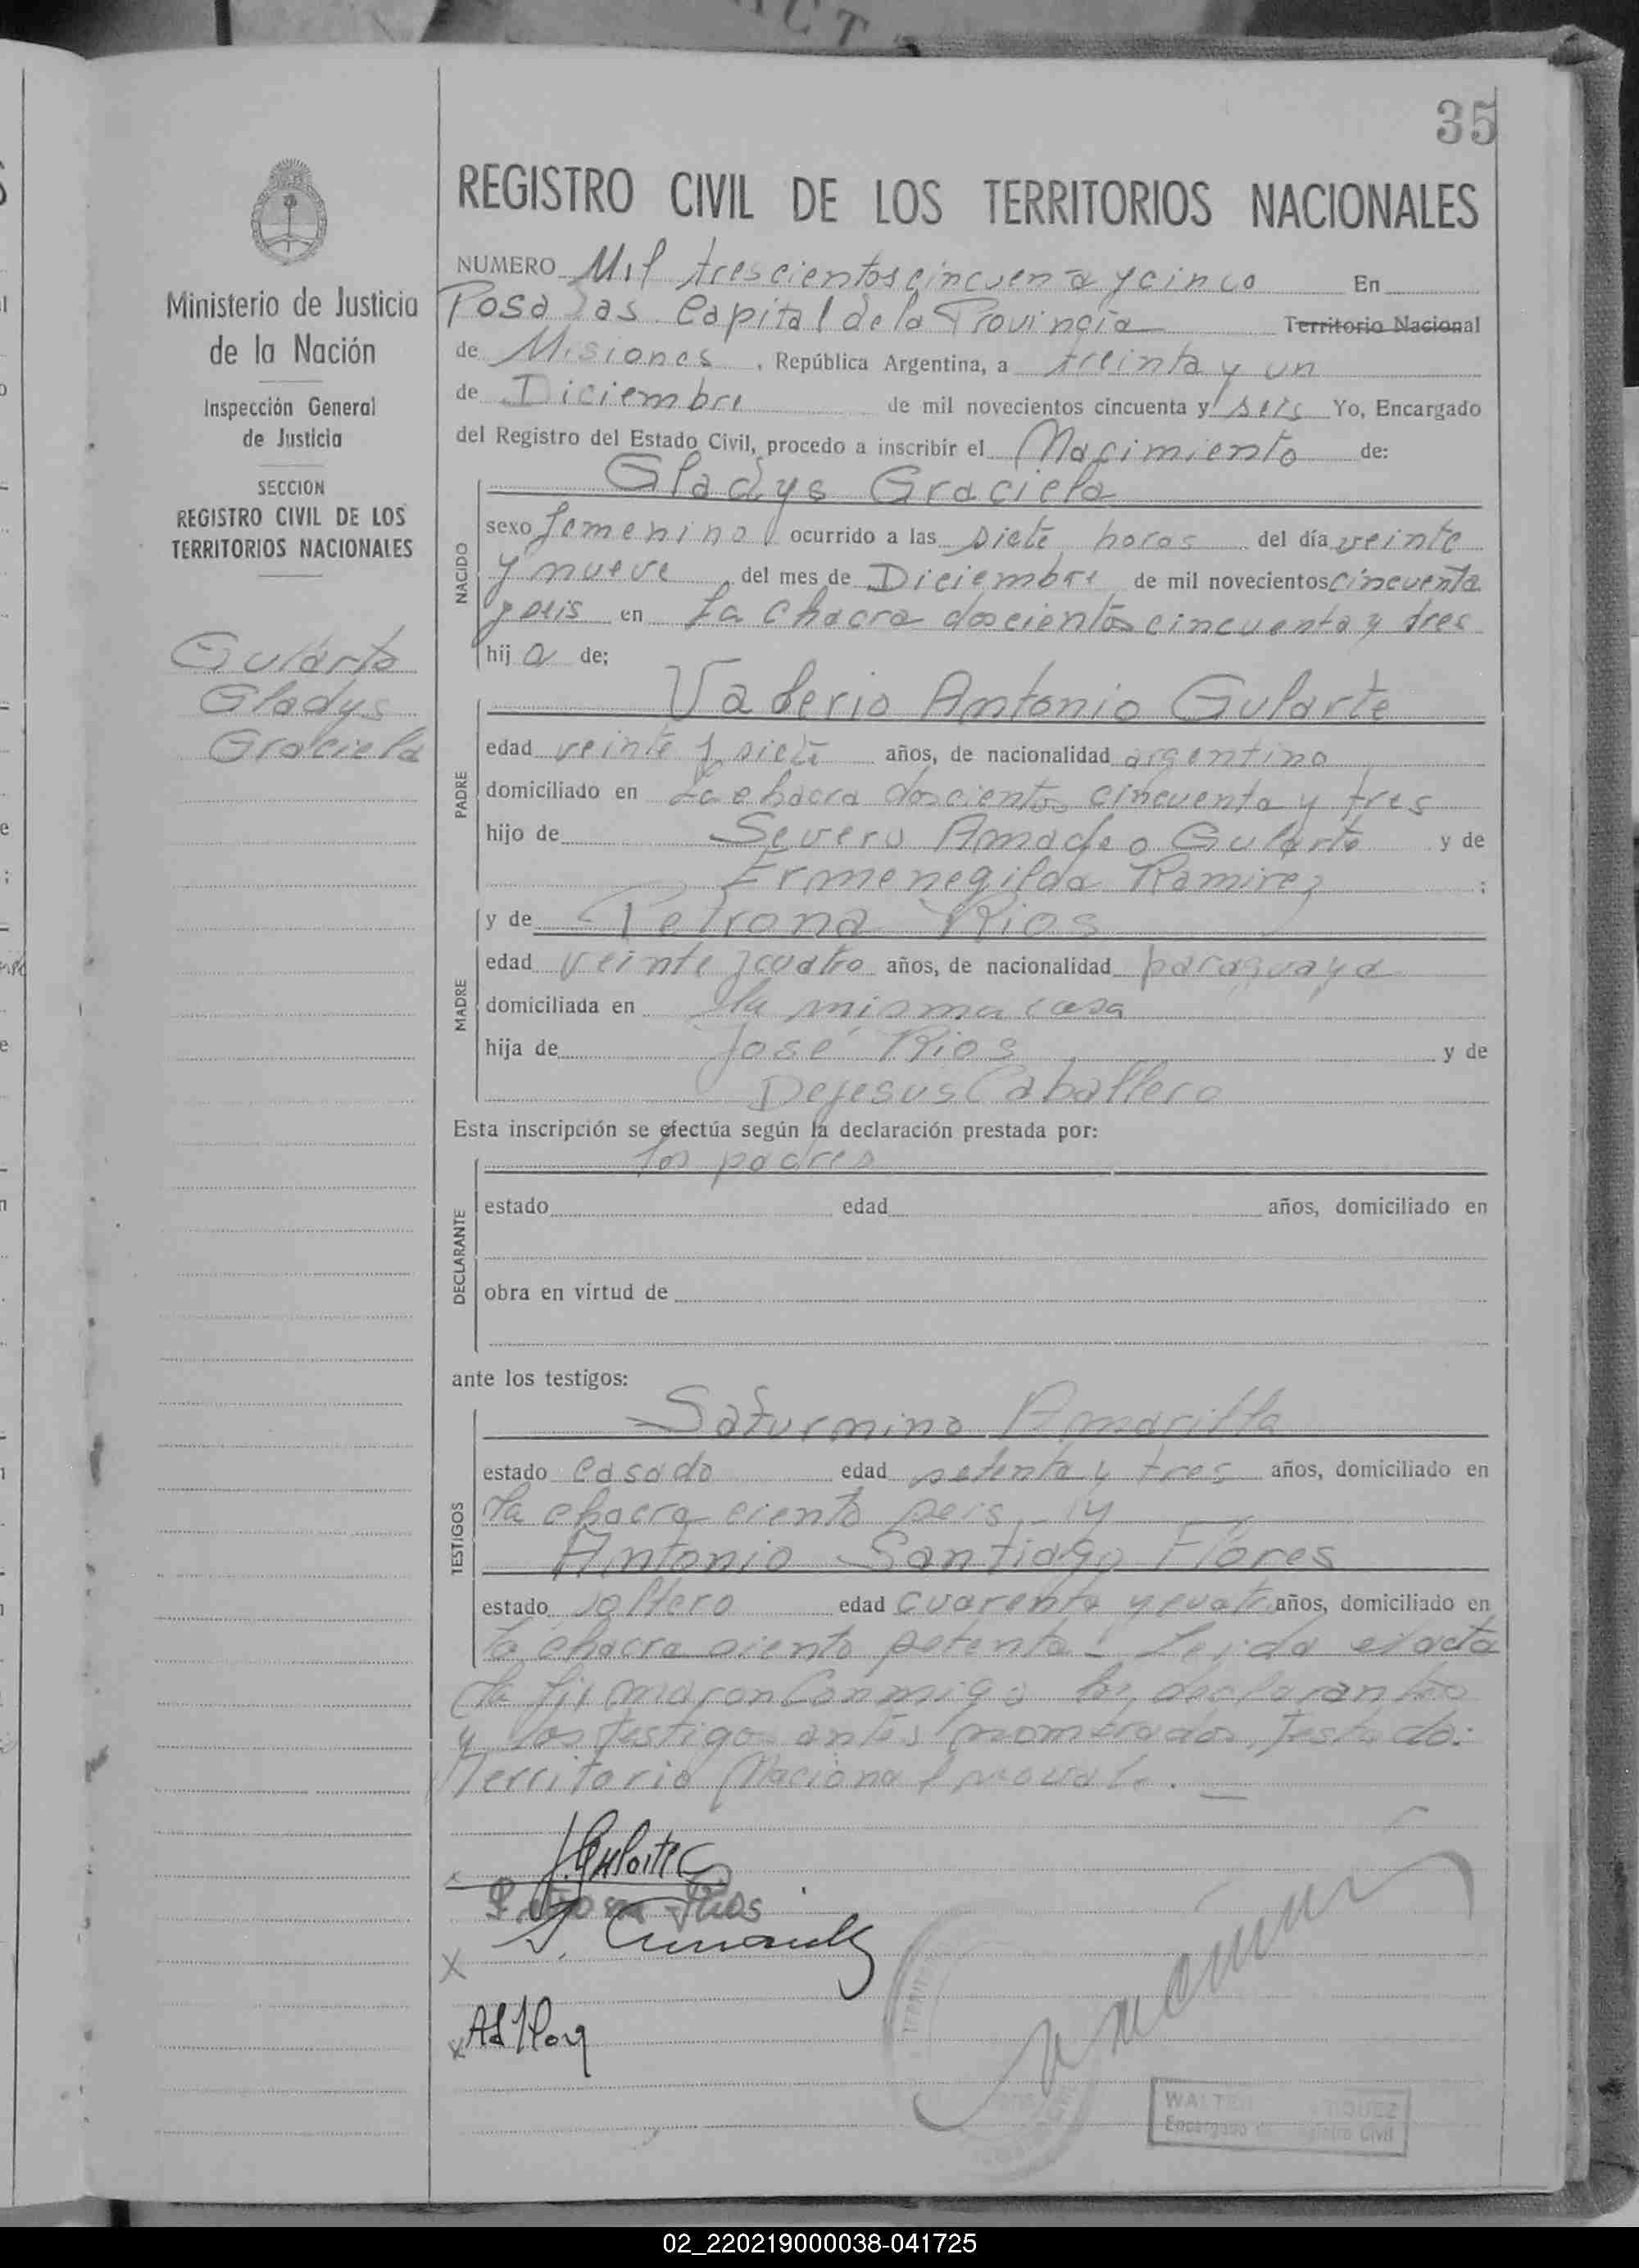 35
REGISTRO CIVIL DE LOS TERRITORIOS NACIONALES
Ministerio de Justicia
de la Nación
Inspección General
de Justicia
SECCION
REGISTRO CIVIL DE LOS
TERRITORIOS NACIONALES
Gularte
Gladys
Graciela
NUMERO Mil trescientos cincuenta y cinco En
Posadas Capital de la Provincia Territorio Nacional
de Misiones, República Argentina, a treinta y un
de Diciembre de mil novecientos cincuenta y seis Yo, Encargado
del Registro del Estado Civil, procedo a inscribir el Nacimiento de:
Gladys Graciela
NACIDO
sexo femenino ocurrido a las siete horas del día veinte
y nueve del mes de Diciembre de mil novecientos cincuenta
y seis en La chacra doscientos cincuenta y tres
hij a de;
Valerio Antonio Gularte
PADRE
edad veinte y siete años, de nacionalidad argentino
domiciliado en La chacra doscientos cincuenta y tres
hijo de Severo Amadeo Gularte y de
Ermenegilda Ramirez ;
y de Petrona Rios
MADRE
edad veinte y cuatro años, de nacionalidad paraguaya
domiciliada en la misma casa
hija de José Rios y de
Dejesus Caballero
Esta inscripción se efectúa según la declaración prestada por:
los padres
DECLARANTE
estado edad años, domiciliado en
obra en virtud de
ante los testigos:
Saturnino Amarilla
TESTIGOS
estado casado edad setenta y tres años, domiciliado en
la chacra ciento seis y
Antonio Santiago Flores
estado soltero edad cuarenta y cuatro años, domiciliado en
la chacra ciento setenta - Leida el acta
la firmaron conmigo los declarantes
y los testigos antes nombrados, Testado:
Territorio Nacional no vale.
Petrona Rios
WALTER
Encargado Civil
02_220219000038-041725